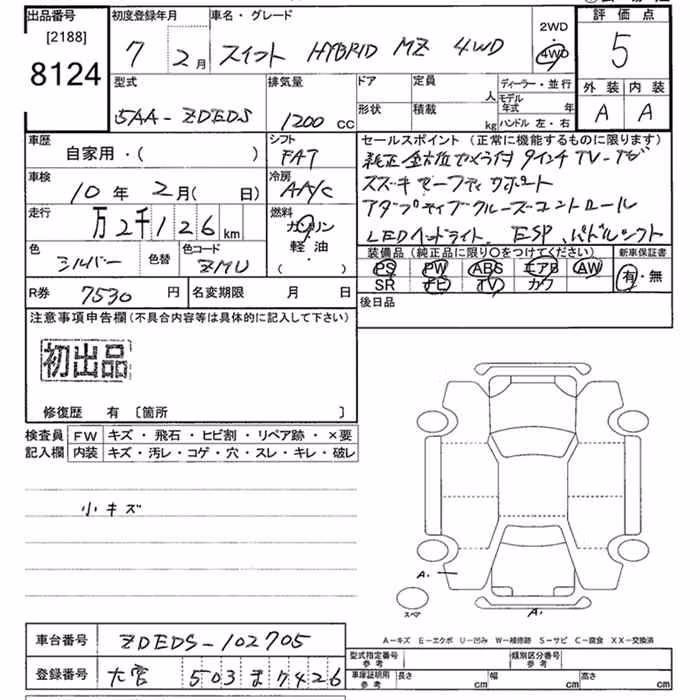 出品番号
[2188]
8124
初度登録年月
7 2月
車名・グレード
スイフト HYBRID MZ 4WD
2WD
4WD
評価点
5
外装 内装
A A
型式
5AA-ZDEDS
排気量
1200 cc
ドア
形状
定員 人
積載 kg
ディーラー・並行
モデル年式 年
ハンドル 左・右
車歴
自家用・( )
シフト
FAT
車検
10年 2月( 日)
冷房
AA/C
走行
万 2千 126 km
燃料
ガソリン
軽油
( )
色
シルバー
色替
色コード
ZMU
セールスポイント(正常に機能するものに限ります)
純正全方位カメラ付 9インチTV-ナビ
スズキセーフティサポート
アダプティブクルーズコントロール
LEDヘッドライト、ESP、パドルシフト
装備品(純正品に限り○をつけてください)
新車保証書
PS PW ABS エアB AW
SR ナビ TV カワ
有・無
R券 7530 円
名変期限 月 日
後日品
注意事項申告欄(不具合内容等は具体的に記入して下さい)
初出品
修復歴 有〔箇所 〕
検査員
記入欄
FW キズ・飛石・ヒビ割・リペア跡・×要
内装 キズ・汚レ・コゲ・穴・スレ・キレ・破レ
小キズ
A.
スペア
A.
A-キズ E-エクボ U-凹み W-補修跡 S-サビ C-腐食 XX-交換済
車台番号 ZDEDS-102705
登録番号 大宮 503 ま 7426
型式指定番号
参考
類別区分番号
参考
車庫証明用
参考
長さ cm 幅 cm 高さ cm